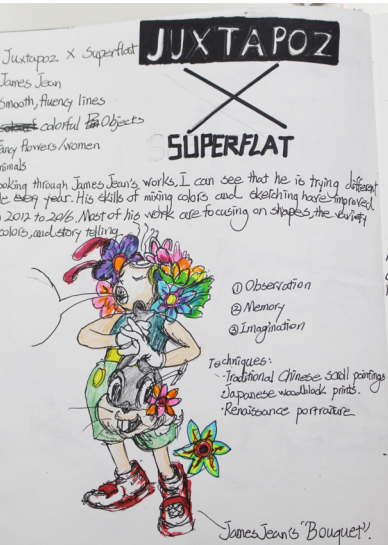 JUXTAPOZ
SUPERFLAT
Juxtapoz X Superflat
James Jean
Smooth, fluency lines
colorful Objects
Fancy flowers/women
nimals
ooking through James Jean's works, I can see that he is trying different
le every year. His skills of mixing colors and sketching have improved
2012 to 2016. Most of his work are focusing on shapes, the variety
colors, and story telling.
① Observation
② Memory
③ Imagination
Techniques:
· Traditional Chinese scroll paintings
· Japanese woodblock prints.
· Renaissance portraiture
James Jean's "Bouquet".